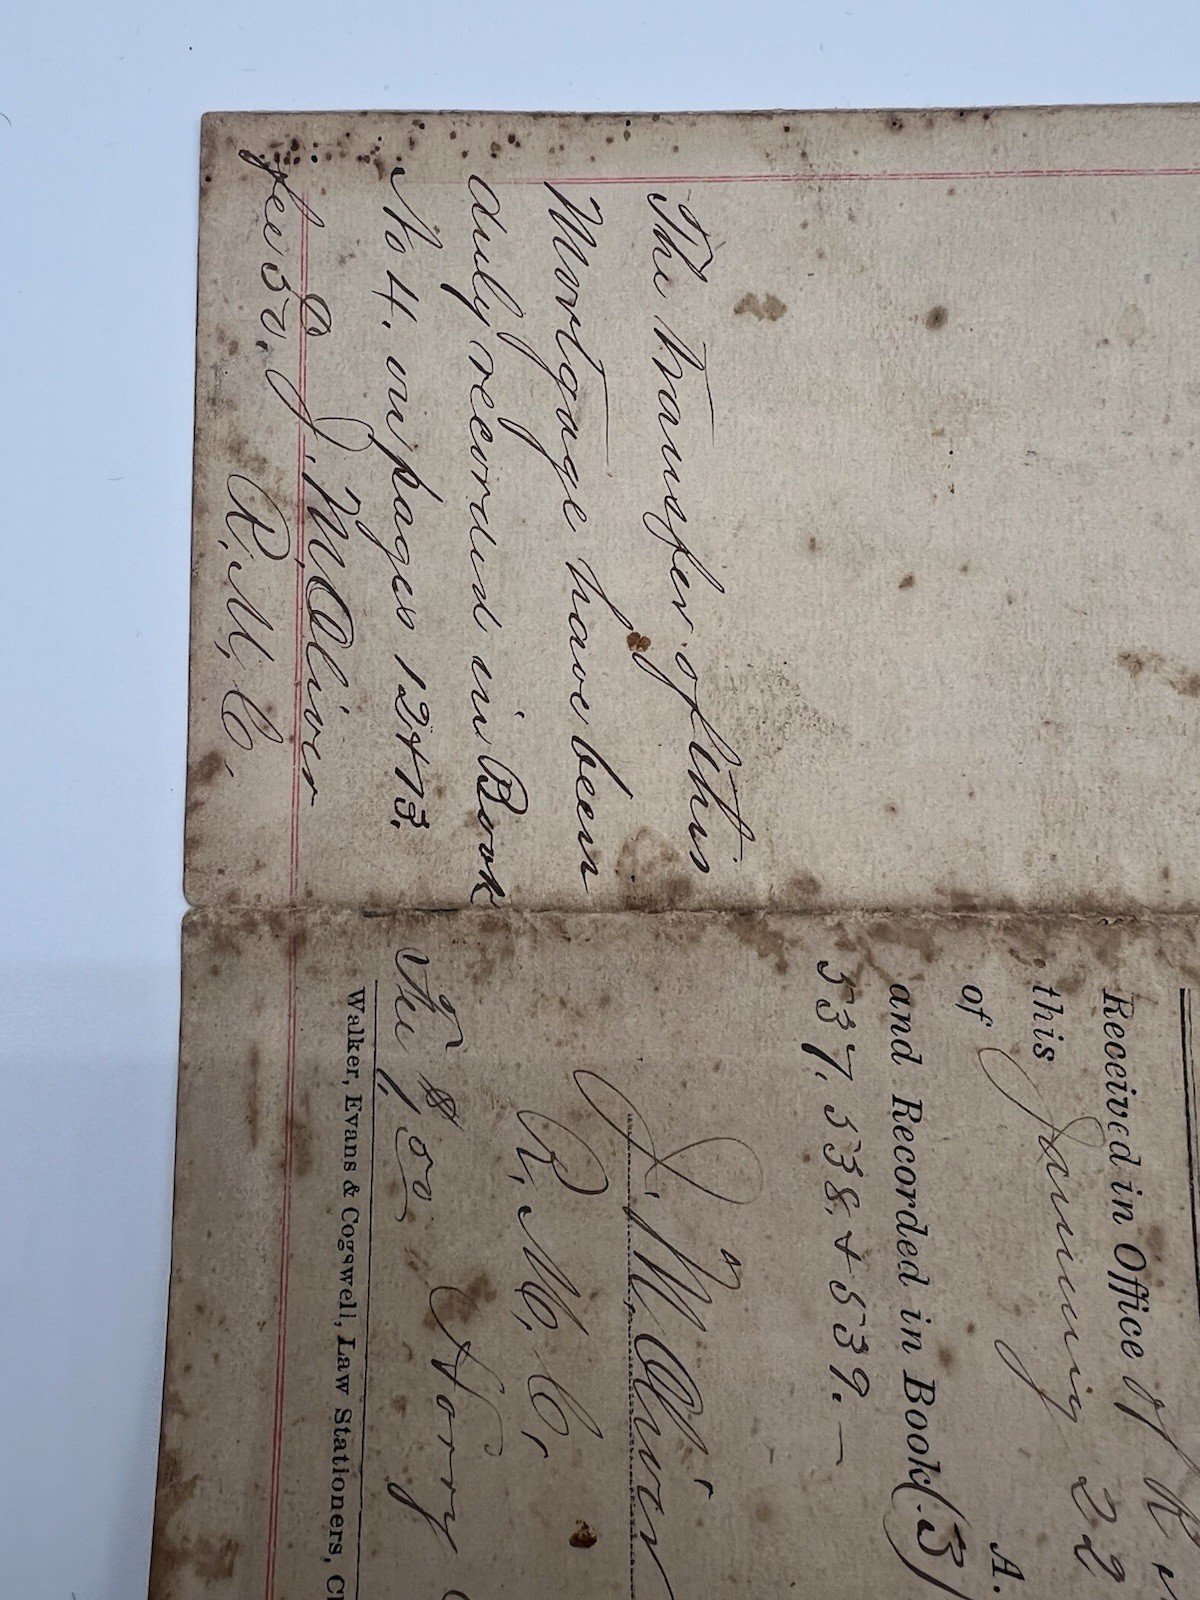 The transfer of this
Mortgage have been
duly record in Book
No 4, on pages 12 & 13.
J. M. Oliver
Fee 50, R. M. C.
Received in Office of R
this 22
of January A.
and Recorded in Book (3)
537, 538, & 539. —
J. M. Oliver
R. M. C.
Fee $1,00 Horry
Walker, Evans & Cogswell, Law Stationers,